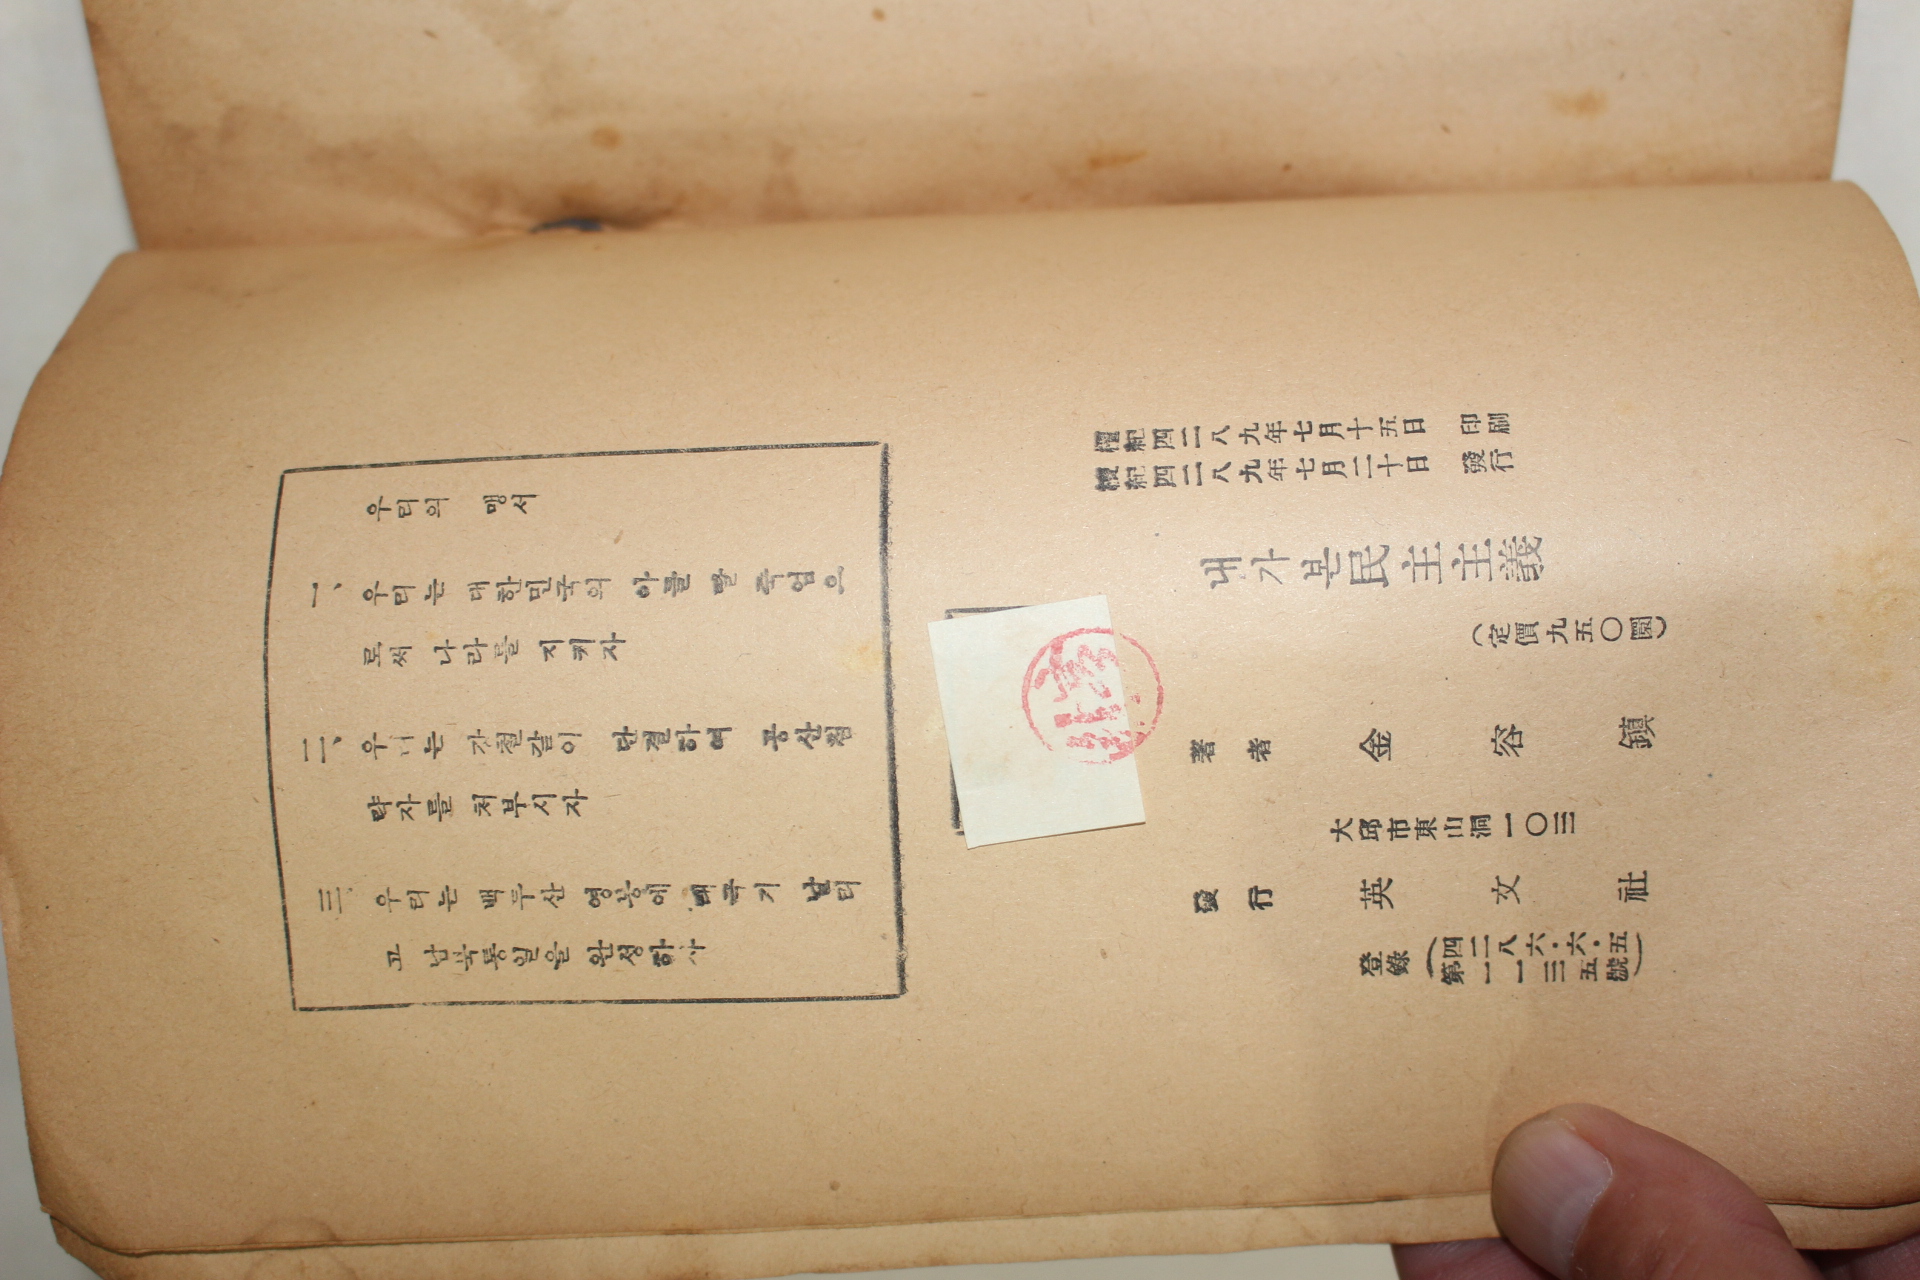 우리의 맹서
一、우리는 대한민국의 아들 딸 죽엄으
로써 나라를 지키자
二、우리는 강철같이 단결하여 공산침
략자를 처부시자
三、우리는 백두산 영봉에 태극기 날리
고 남북통일을 완성하자
檀紀四二八九年七月十五日 印刷
檀紀四二八九年七月二十日 發行
내가본民主主義
(定價九五〇圜)
著者 金容鎭
大邱市東山洞一〇三
發行 英文社
登錄 (四二八六・六・五
第一一三五號)